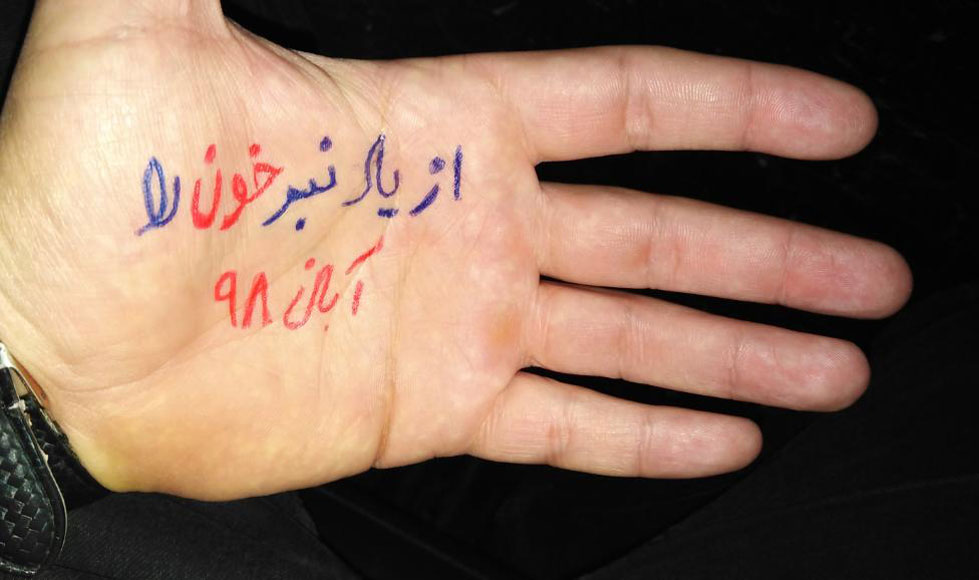 از یاد نبر خون را
آبان ۹۸